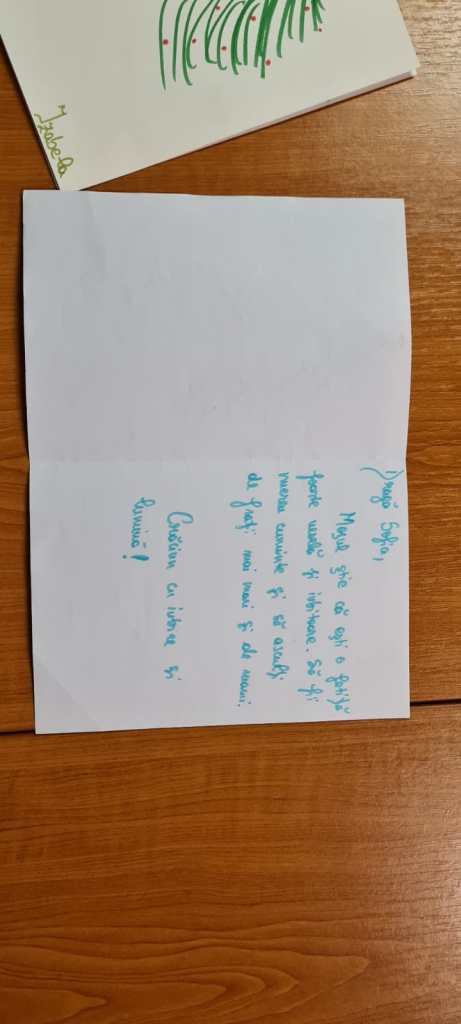 Izabela
Dragă Sofia,
Moșul știe că ești o fetiță
foarte mică și iubitoare. Să fi
mereu cuminte și să asculți
de frați mai mari și de mami.
Crăciun cu iubire și
lumină!